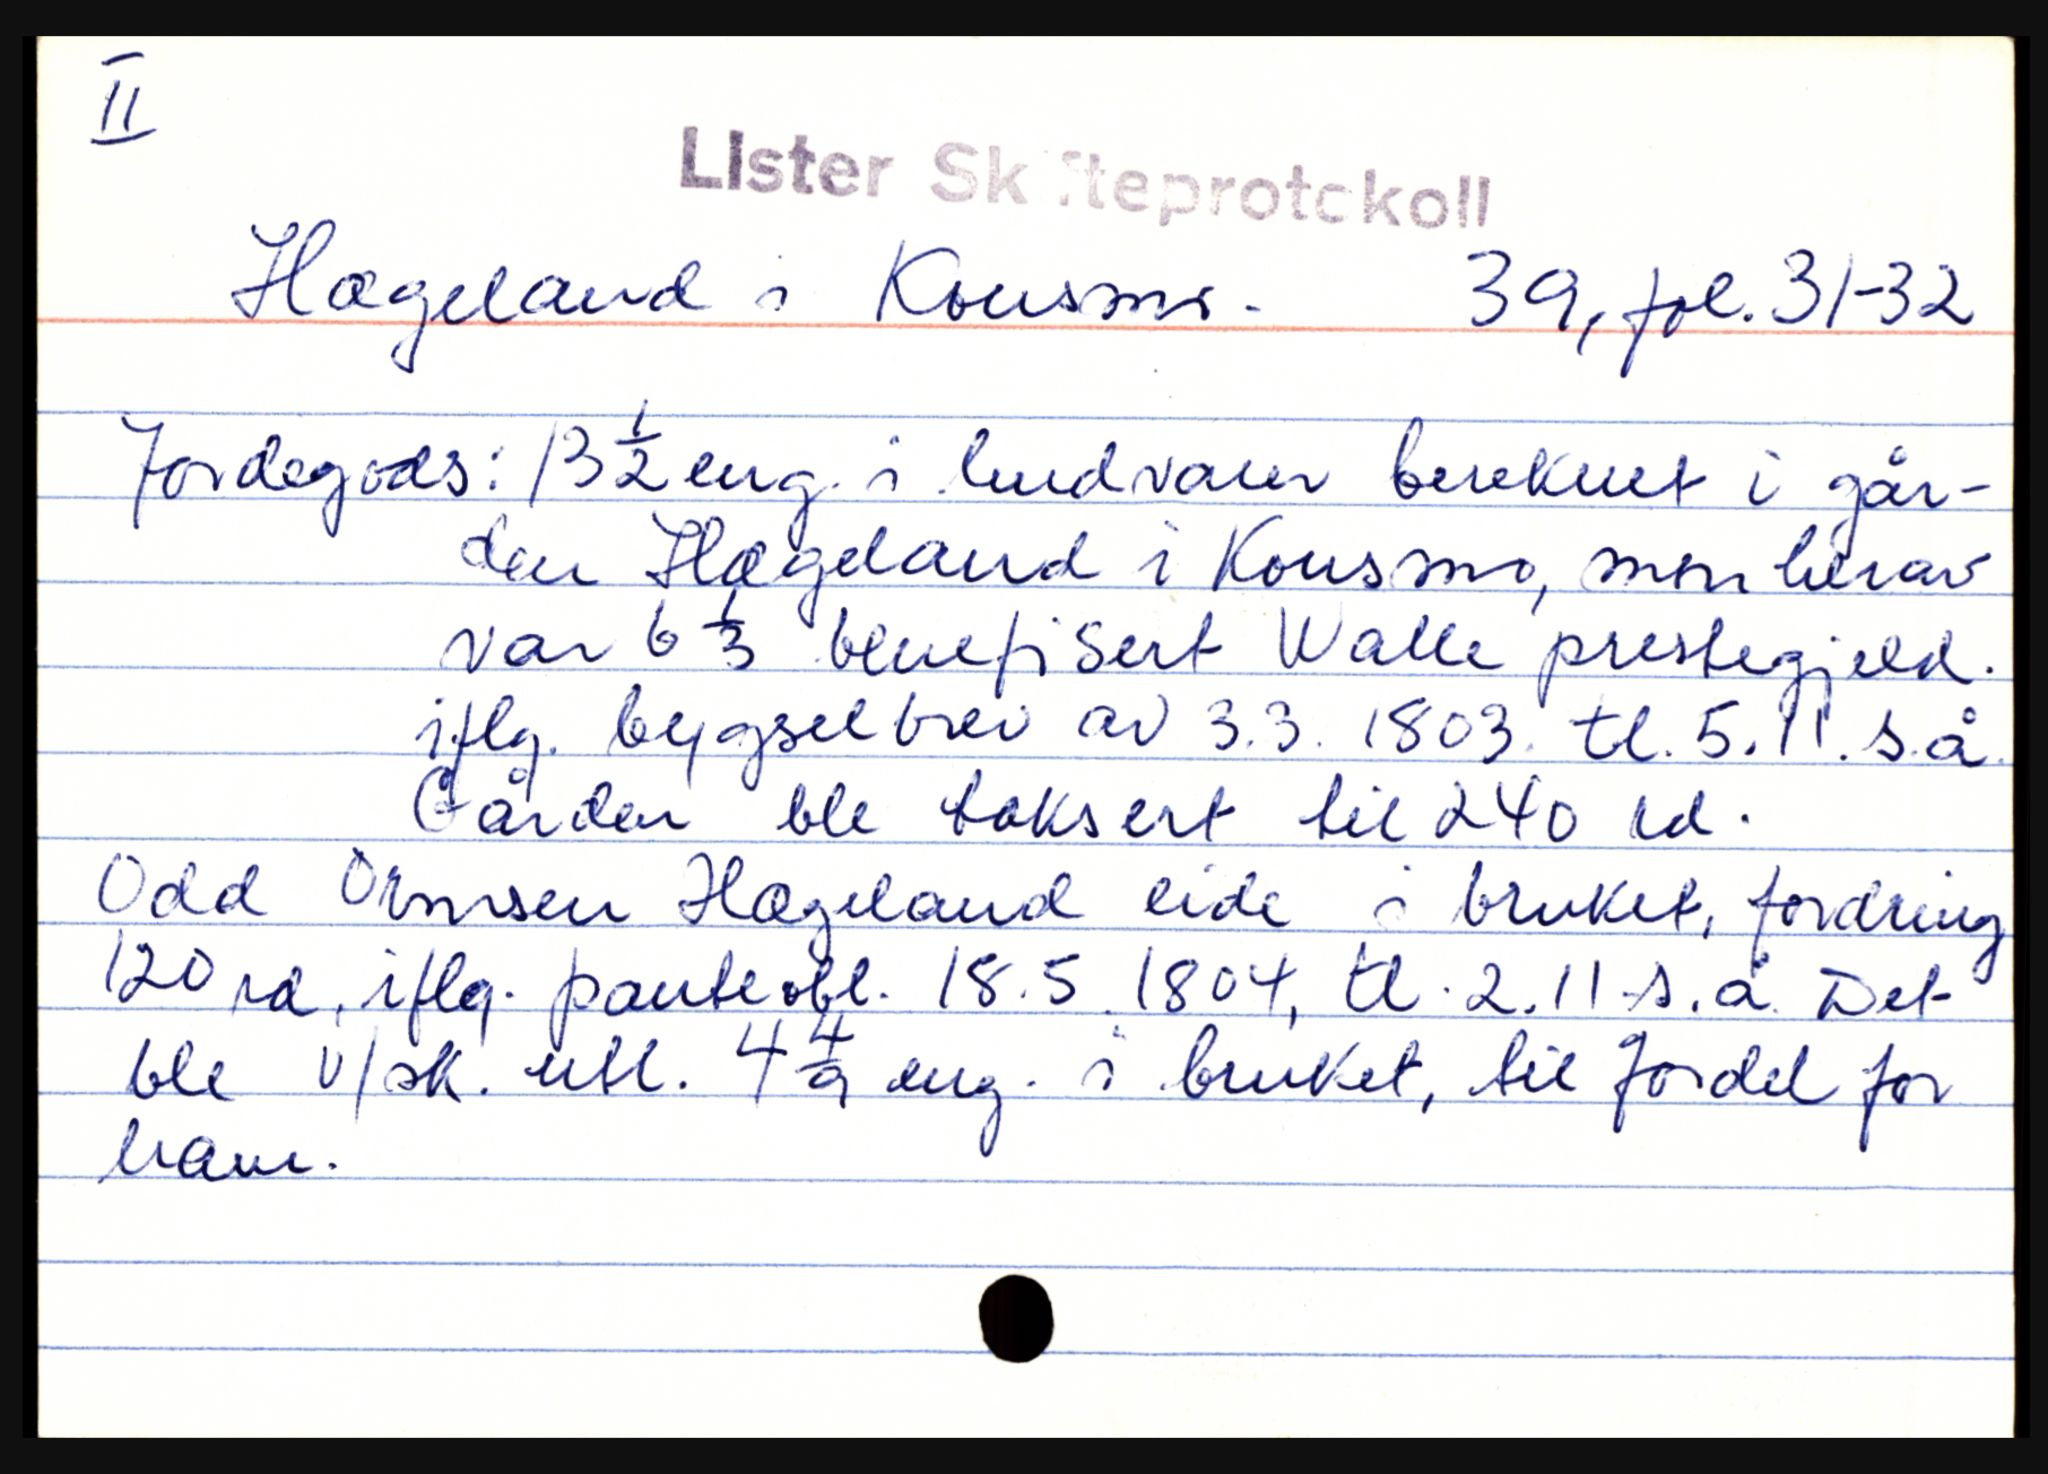 II
LIster Skifteprotokoll
Hægeland i Konsmo. 39, fol. 31-32
Jordegods: 13 1/2 eng. i hudvarer bereknet i går-
den Hægeland i Konsmo, men herav
var 6 1/3 benefisert Walle prestegjeld.
iflg. bygselbrev av 3.3. 1803. tl. 5.11. s.å.
Gården ble taksert til 240 rd.
Odd Ormsen Hægeland eide i bruket, fordring
120 rd, iflg. panteobl. 18.5.1804, tl. 2.11 s.å. Det
ble v/sk. utl. 4 4/9 eng. i bruket, til fordel for
ham.